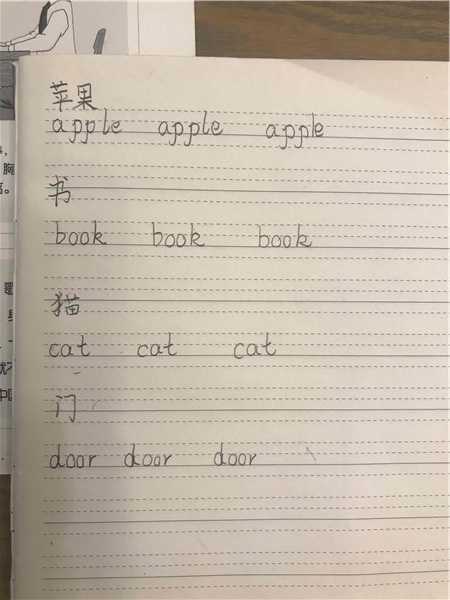 苹果
apple apple apple
书
book book book
猫
cat cat cat
门
door door door